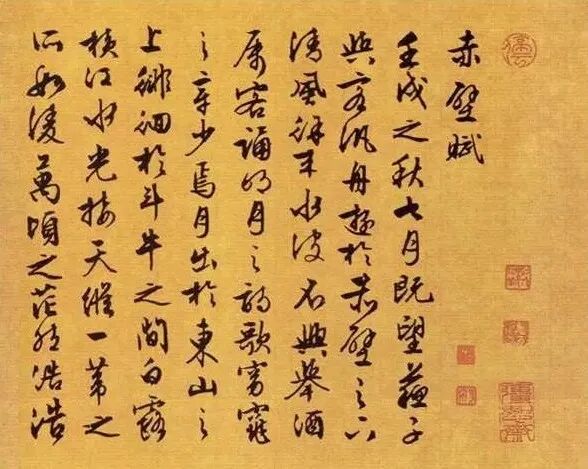 赤壁賦
壬戌之秋七月既望蘇子
與客汎舟遊於赤壁之下
清風徐來水波不興舉酒
屬客誦明月之詩歌窈窕
之章少焉月出於東山之
上徘徊於斗牛之間白露
橫江水光接天縱一葦之
所如淩萬頃之茫然浩浩